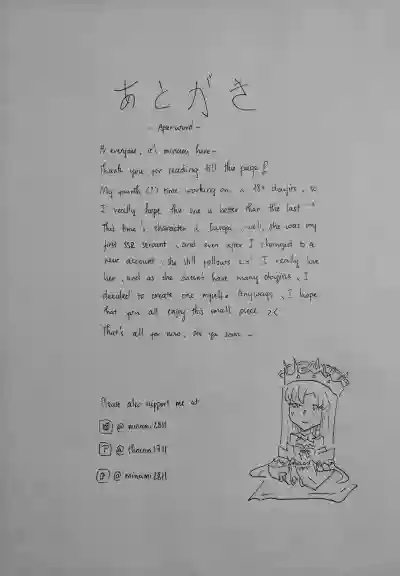 あとがき
- Afterword -
Hi everyone, it's minami here~
Thank you for reading till this page!
My fourth (?) time working on a 18+ doujin, so
I really hope this one is better than the last ^
This time's character is Europa, well, she was my
first SSR servant, and even after I changed to a
new account, she still follows I really love
her, and as she doesn't have many doujins, I
decided to create one myself. Anyways, I hope
that you all enjoy this small piece ><
That's all for now, see you soon ~
Please also support me at
@ minami2811
P @
@ minami2811